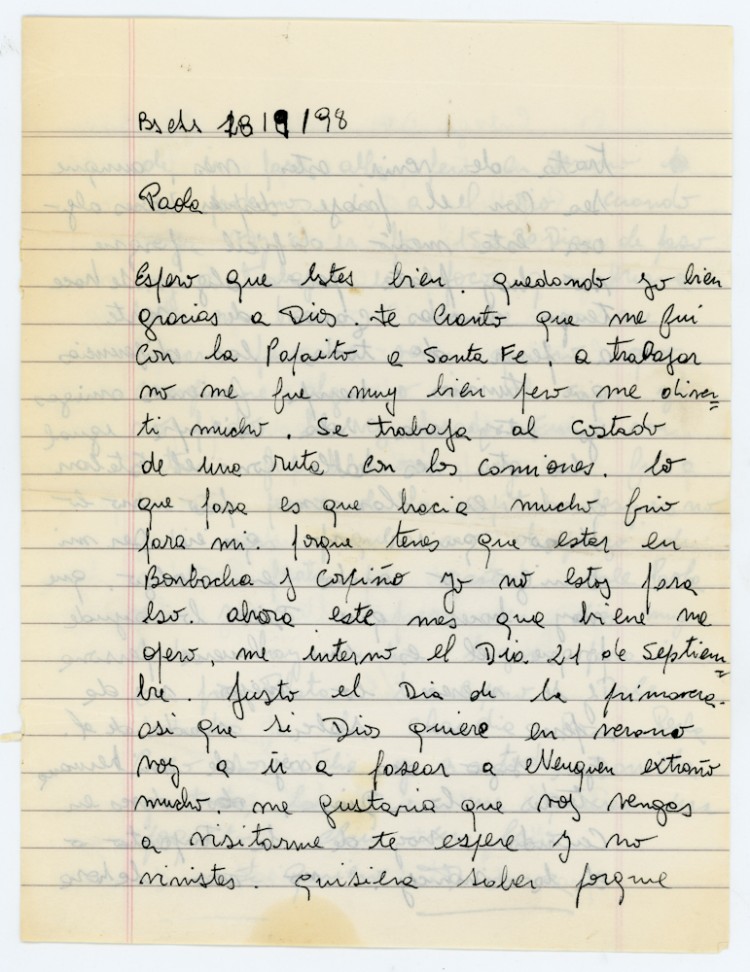 Bs As 18/9/98
Paola
Espero que estes bien. quedando yo bien
gracias a Dios. te Cuento que me fui
con la Papaito a Santa Fe. a trabajar
no me fue muy bien pero me diver=
ti mucho. Se trabaja al Costado
de una ruta con los camiones. lo
que pasa es que hacia mucho frio
para mi. porque tenes que estar en
Bonbacha y Corpiño yo no estoy para
eso. ahora este mes que biene me
opero, me interno el Dia 21 de Septiem=
bre. justo el Dia de la primavera.
asi que si Dios quiere en verano
voy a ir a pasear a Neuquen extraño
mucho. me gustaria que vos vengas
a visitarme te espere y no
vinistes. quisiera saber porque